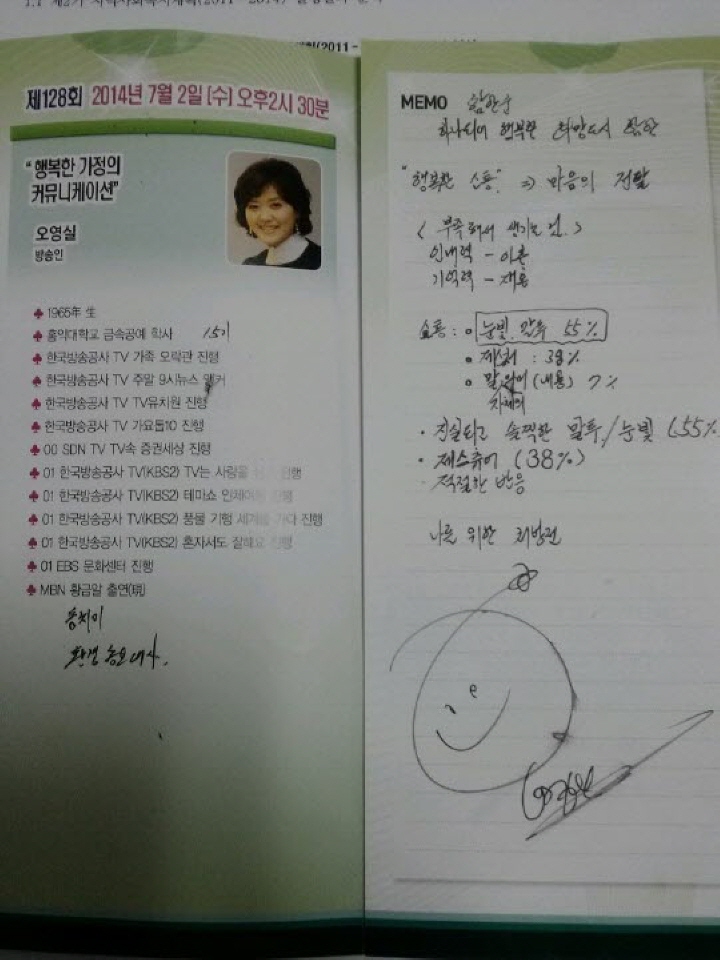 제128회 2014년 7월 2일 (수) 오후2시 30분
"행복한 가정의
커뮤니케이션"
오영실
방송인
♣ 1965年 生
♣ 홍익대학교 금속공예 학사 15기
♣ 한국방송공사 TV 가족 오락관 진행
♣ 한국방송공사 TV 주말 9시뉴스 앵커
♣ 한국방송공사 TV TV유치원 진행
♣ 한국방송공사 TV 가요톱10 진행
♣ 00 SDN TV TV속 증권세상 진행
♣ 01 한국방송공사 TV(KBS2) TV는 사랑을 진행
♣ 01 한국방송공사 TV(KBS2) 테마쇼 진행
♣ 01 한국방송공사 TV(KBS2) 풍물 기행 세계를 가다 진행
♣ 01 한국방송공사 TV(KBS2) 혼자서도 잘해요 진행
♣ 01 EBS 문화센터 진행
♣ MBN 황금알 출연(現)
환경 홍보대사.
MEMO
행복한 희망도시
"행복한 소통" ⇒ 마음의 전달
< 부족해서 생기는 일 >
인내력 - 이혼
기억력 - 재혼
소통 : 눈빛, 말투 55%
제스처 : 38%
말 언어 (내용) 7%
자체의
· 진실되고 솔직한 말투/눈빛 (55%
· 제스츄어 (38%)
· 적절한 반응
나를 위한 처방전